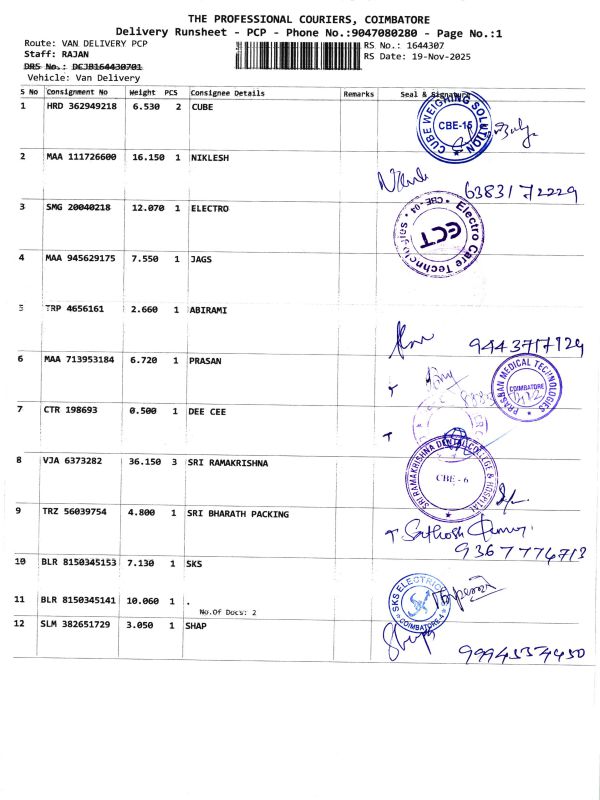 THE PROFESSIONAL COURIERS, COIMBATORE
Delivery Runsheet - PCP - Phone No.:9047080280 - Page No.:1
Route: VAN DELIVERY PCP
RS No.: 1644307
Staff: RAJAN
RS Date: 19-Nov-2025
DRS No.: DCJB164430701
Vehicle: Van Delivery
S No Consignment No Weight PCS Consignee Details Remarks Seal & Signature
1 HRD 362949218 6.530 2 CUBE
CUBE WEIGHING SOLUTION
CBE-15
2 MAA 111726600 16.150 1 NIKLESH
6383172229
3 SMG 20040218 12.070 1 ELECTRO
Electro Care Technologies
CBE-04
ECT
4 MAA 945629175 7.550 1 JAGS
5 TRP 4656161 2.660 1 ABIRAMI
9443717129
6 MAA 713953184 6.720 1 PRASAN
PRASBAN MEDICAL TECHNOLOGIES
COIMBATORE
7 CTR 198693 0.500 1 DEE CEE
8 VJA 6373282 36.150 3 SRI RAMAKRISHNA
SRI RAMAKRISHNA DENTAL COLLEGE & HOSPITAL
CBE - 6
9 TRZ 56039754 4.800 1 SRI BHARATH PACKING
Sathosh Kumar
9367774713
10 BLR 8150345153 7.130 1 SKS
SKS ELECTRICALS
COIMBATORE-4
11 BLR 8150345141 10.060 1 .
No.Of Docs: 2
12 SLM 382651729 3.050 1 SHAP
99945374450